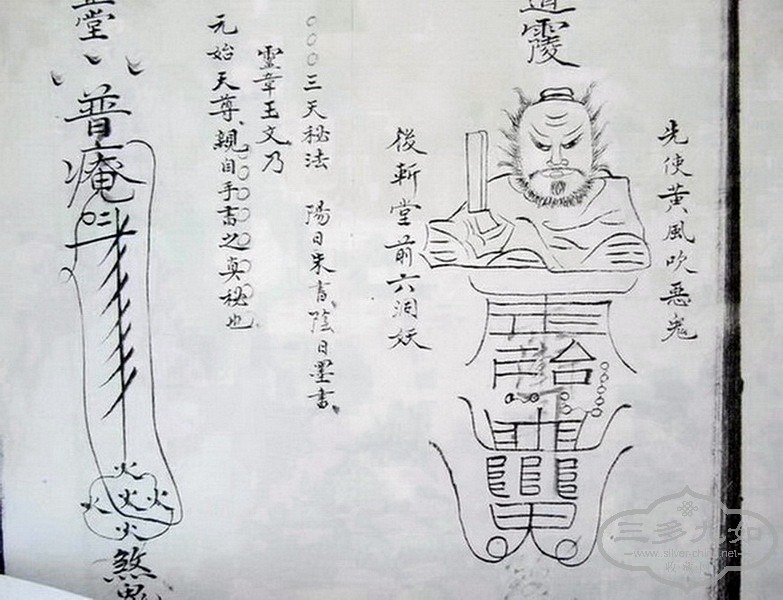 先使黃風吹惡鬼
道
後斬堂前六洞妖
○○○三天秘法 陽日朱書陰日墨書
靈章玉文乃
元始天尊親自手書之真秘也
堂
普庵
火
火火火
火
煞鬼
三多九如
www.silver-china.net